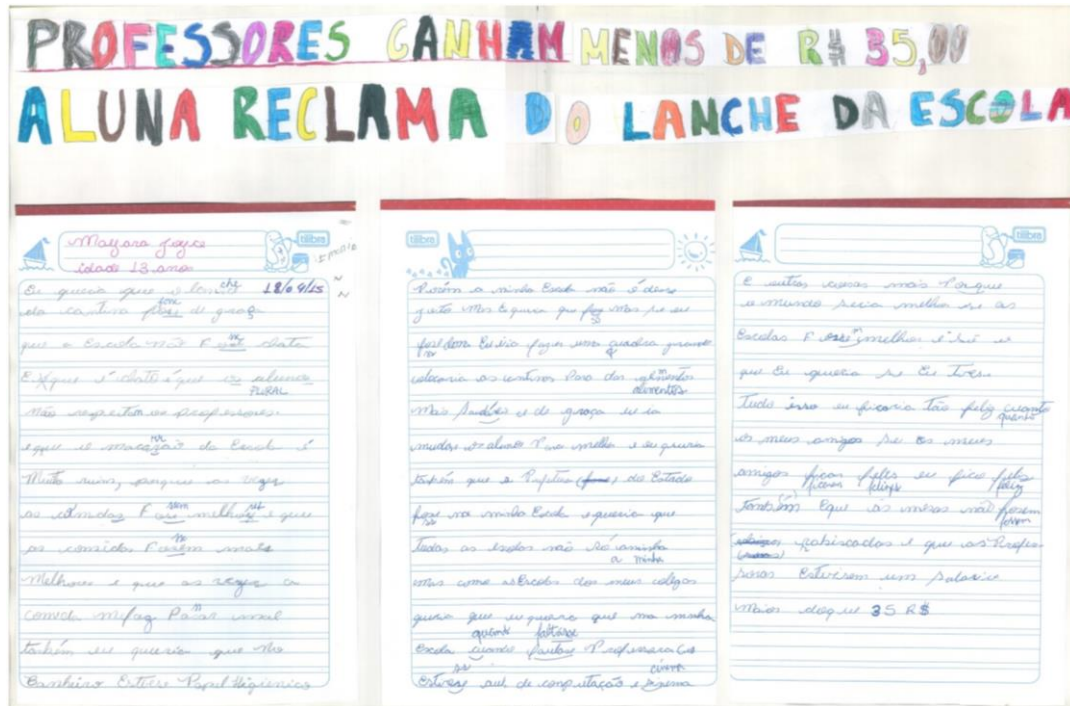 PROFESSORES CANHAM MENOS DE R$ 35,00
ALUNA RECLAMA DO LANCHE DA ESCOLA
tilibra
Mayara Joyce
idade 13 anos
Eu queria que o lanche 18/09/15
da cantina fose de graça
que a Escola não F chata
E que é chato é que os alunos
PLURAL
não respeitam os professores.
e que o macarão da Escola é
Muito ruim, porque as vezes
as comidas F melhor e que
as comidas Fosem mais
Melhores e que as vezes a
comida mifaz Pasar mal
também eu queria que no
Banheiro Estvese Papel Higienico
tilibra
Porém a minha Escola não é dese
geito Mas Eu queria que fose Mas se eu
fose dona Eu iria fazer uma quadra grande
colocaria as cantinas Para dar
alimentos
Mais Saudáveis e de graça eu ia
mudar os alunos Para melhor e eu queria
também que o do Estado
fose na minha Escola e queria que
todas as escolas não Só aminha
a minha
mas como as Escolas dos meus colegas
queria que eu queria que na minha
quando faltasse
Escola quando fautase Professora
se cinema
Estvese aula de computação e
tilibra
E outras coisas mais Porque
o mundo seria melhor se as
Escolas F melhor é Só o
que Eu queria se Eu
Tudo isso eu ficaria tão feliz cuanto
quanto
os meus amigos Se os meus
amigos ficar felis eu fico felis
ficarem felizes feliz
também E que as mesas não fosem
fossem
rabiscadas e que as Profes-
soras Estvesem um Salario
maior doque 35 R$